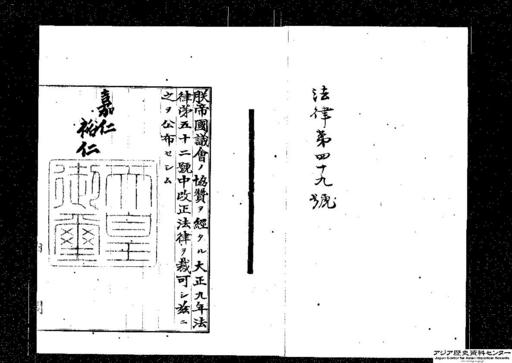 法律第四十九號
朕帝國議會ノ協贊ヲ經タル大正九年法
律第五十二號中改正法律ヲ裁可シ茲ニ
之ヲ公布セシム
嘉仁
裕仁
天皇
御璽
内
閣
アジア歴史資料センター
Japan Center for Asian Historical Records